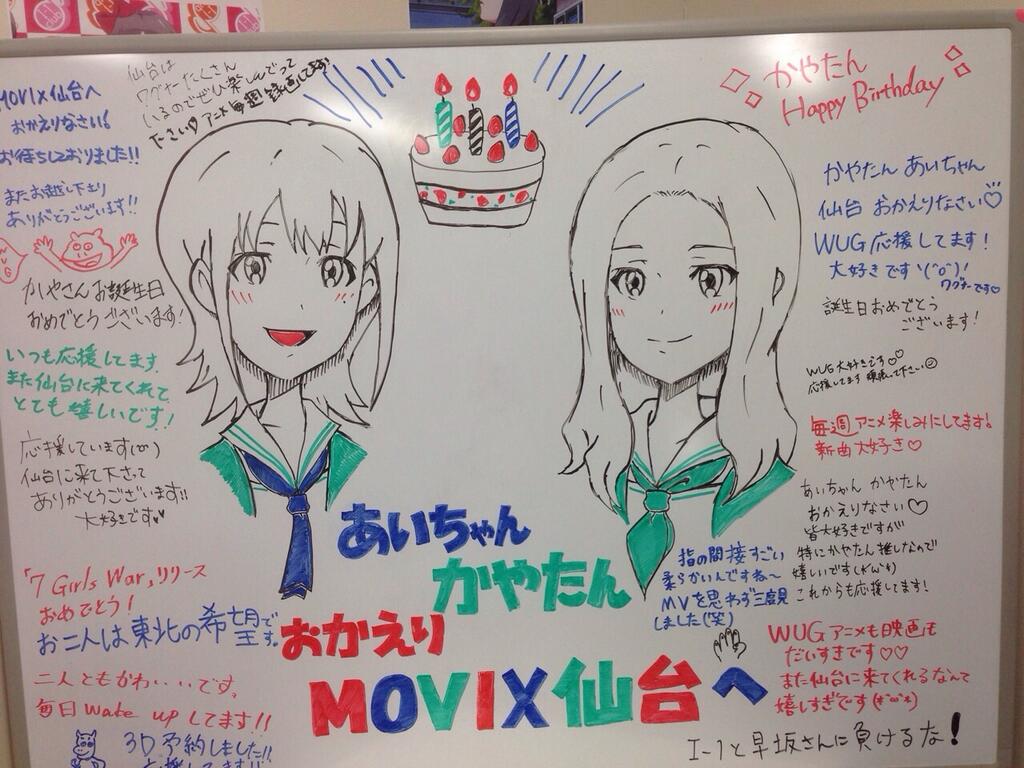 MOVIX仙台へ
おかえりなさい!
お待ちしておりました!!
またお越し下さり
ありがとうございます!!
WUG
かやさんお誕生日
おめでとうございます!
いつも応援してます
また仙台に来てくれて
とても嬉しいです!
応援しています(^o^)
仙台に来て下さって
ありがとうございます!!
大好きです♥
「7 Girls War」リリース
おめでとう!
お二人は東北の希望です。
二人ともかわ・・・です。
毎日wake upしてます!!
3D予約しました!!
応援してます!!
仙台は
ワグナーたくさん
いるのでぜひ楽しんでって
ださい♡アニメ毎週録画してます
かやたん
Happy Birthday
かやたん あいちゃん
仙台 おかえりなさい♡
WUG応援してます!
大好きです
ワグナーです♡
誕生日おめでとう
ございます!
WUG大好きです♡♡
応援してます 頑張って下さい
毎週アニメ楽しみにしてます!
新曲大好き♡
あいちゃん かやたん
おかえりなさい♡
皆大好きですが
特にかやたん推しなので
嬉しいです
これからも応援してます!
指の間接すごい
柔らかいんですね〜
MVを思わず三度見
しました(笑)
WUGアニメも映画も
だいすきです♡♡
また仙台に来てくれるなんて
嬉しすぎです
I-1と早坂さんに負けるな!
あいちゃん
かやたん
おかえり
MOVIX仙台へ